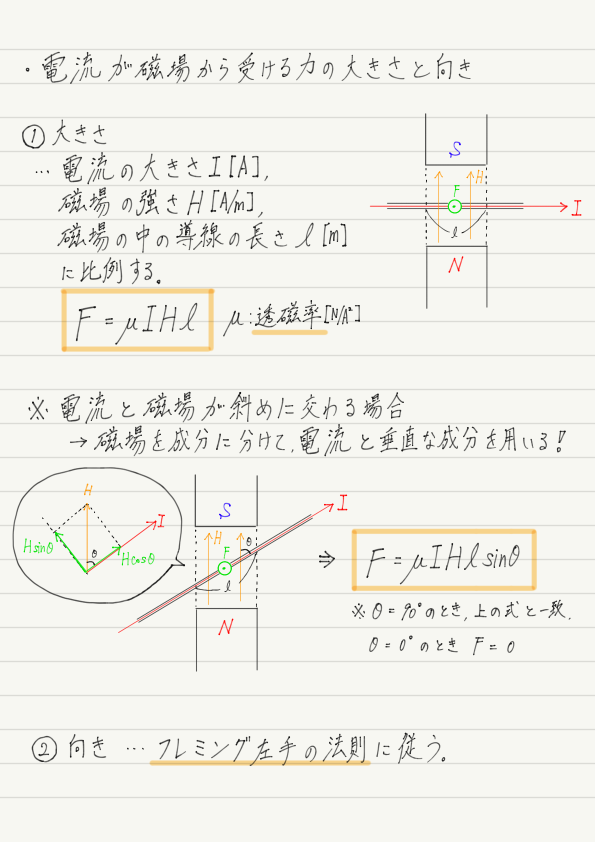 ・電流が磁場から受ける力の大きさと向き
① 大きさ
… 電流の大きさ I [A],
磁場の強さ H [A/m],
磁場の中の導線の長さ l [m]
に比例する。
F = μIHl
μ:透磁率[N/A²]
S
H
F
I
l
N
※ 電流と磁場が斜めに交わる場合
→ 磁場を成分に分けて、電流と垂直な成分を用いる!
H
I
Hsinθ
θ
Hcosθ
S
I
H
θ
F
l
N
⇒ F = μIHl sinθ
※ θ = 90° のとき、上の式と一致.
θ = 0° のとき F = 0
② 向き … フレミング左手の法則に従う。